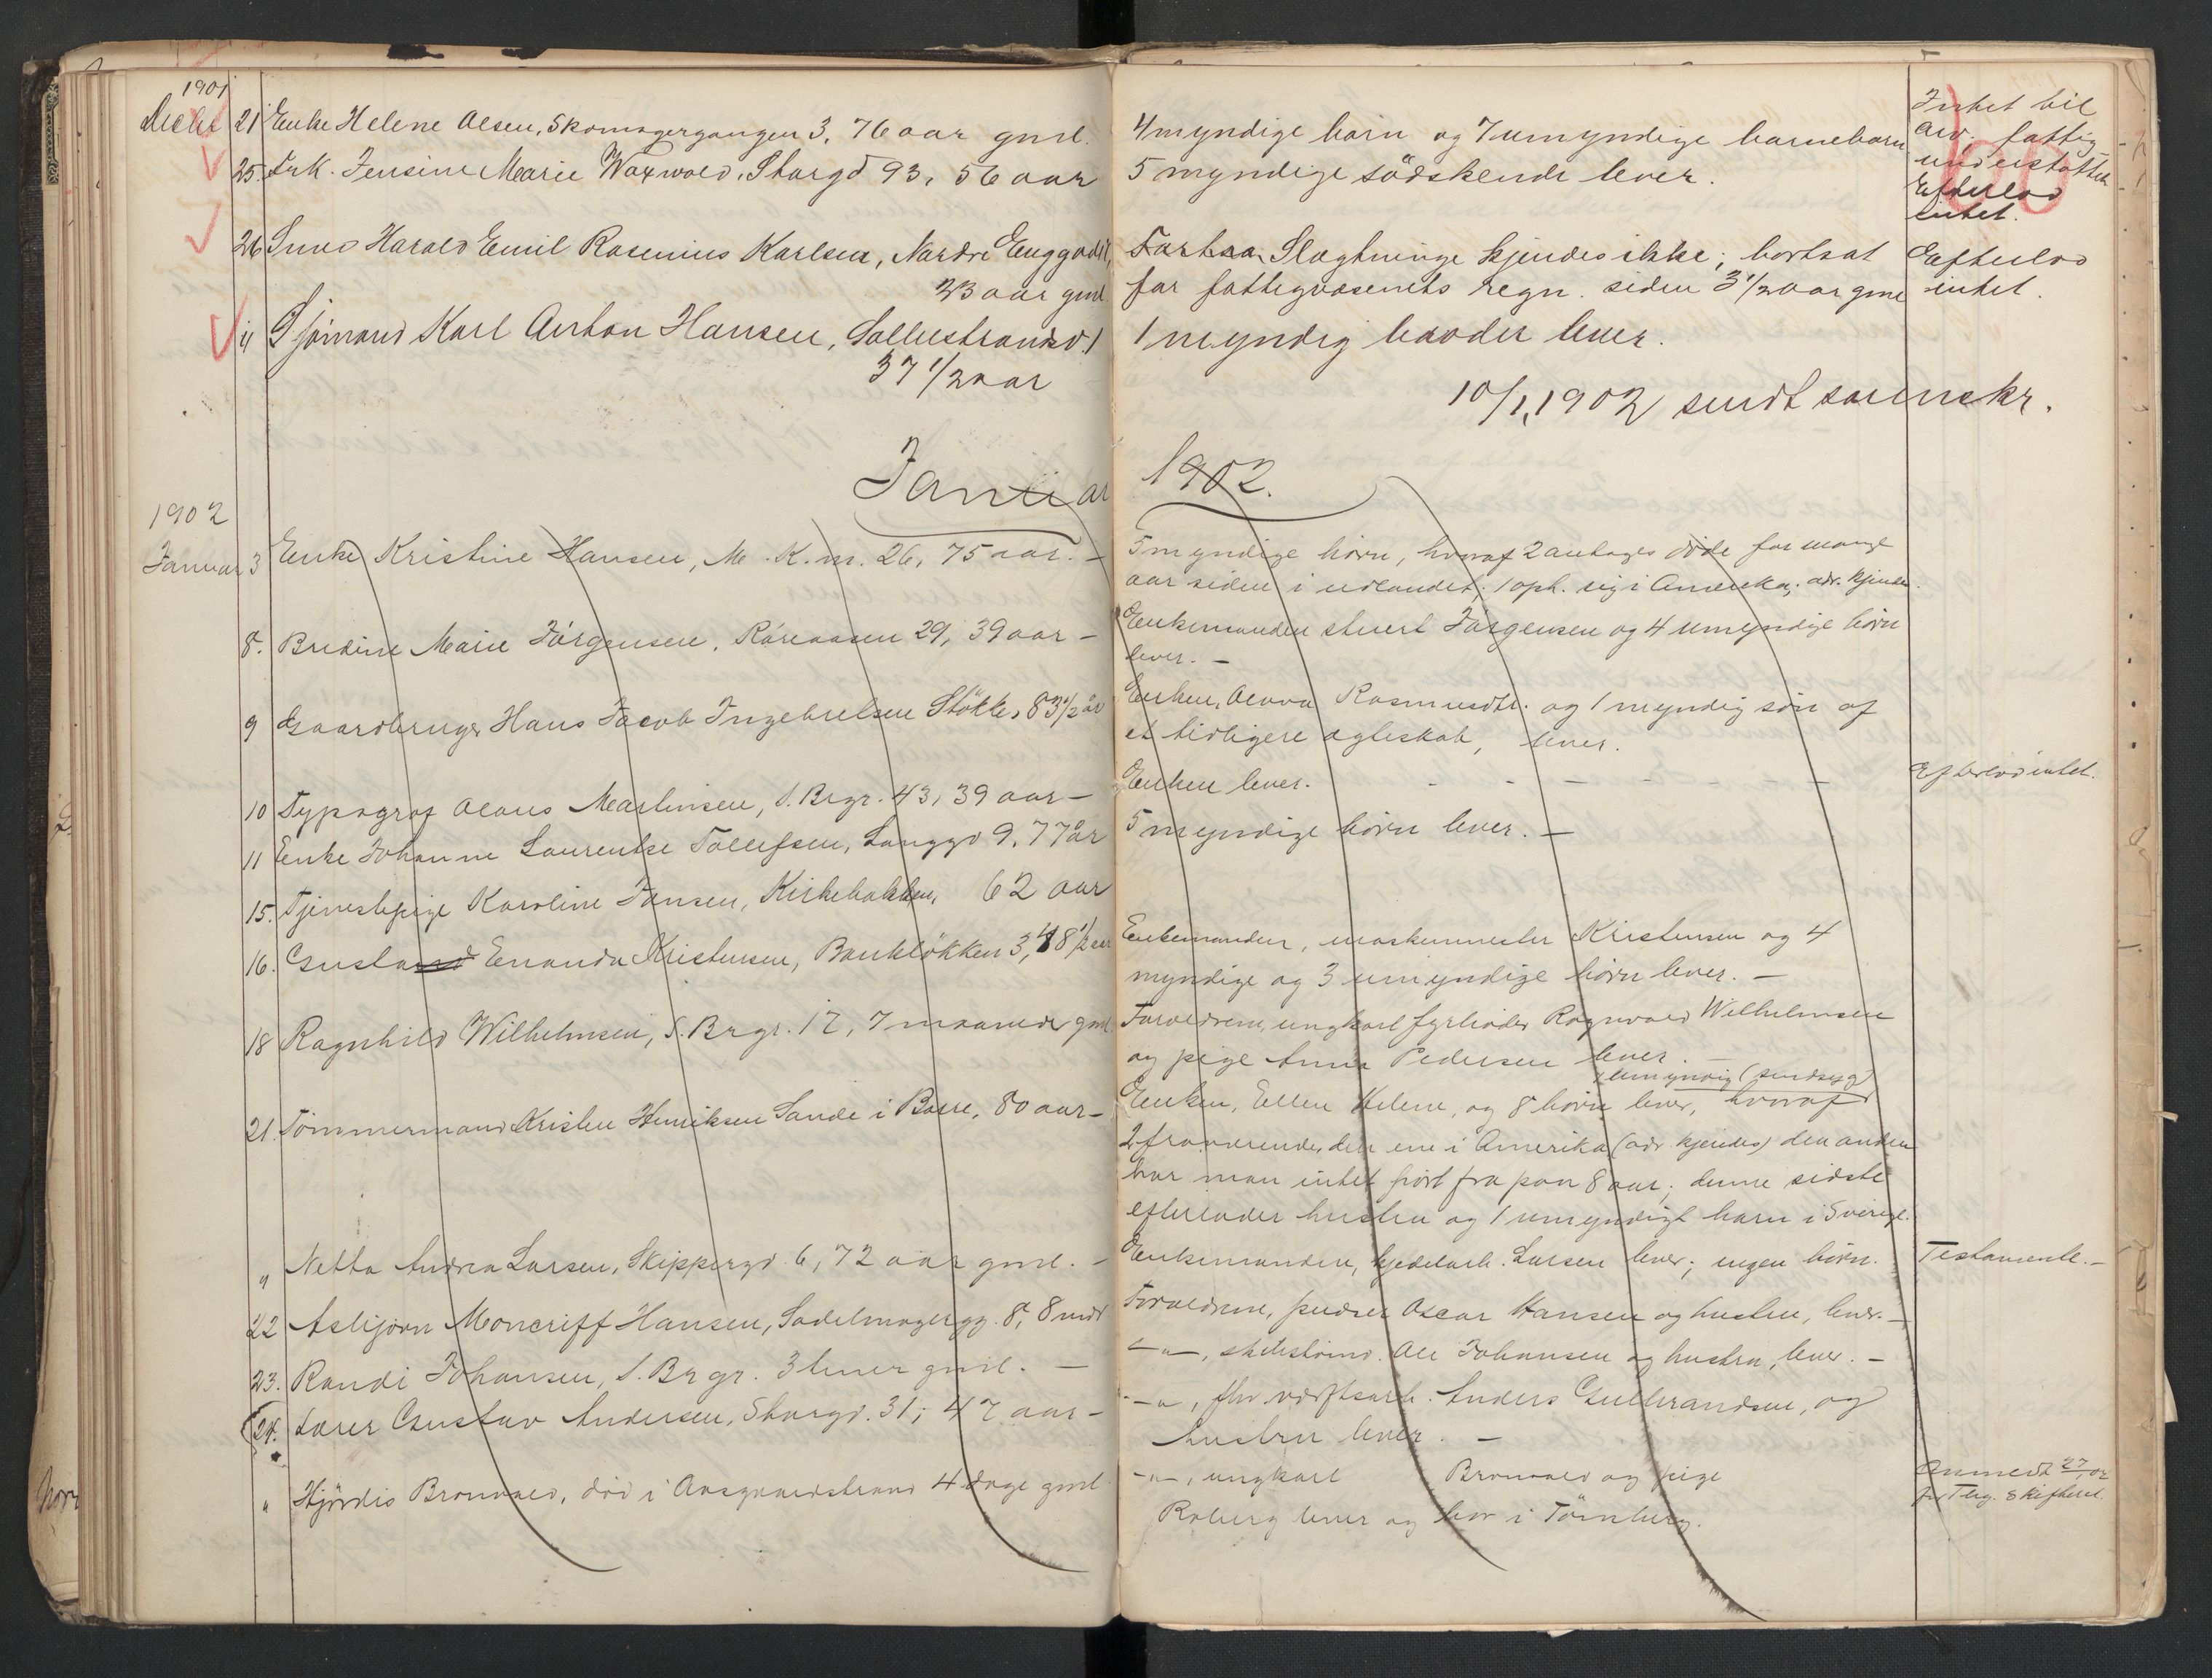 1901
Decbr 21 Enke Helene Olsen, Skomagergangen 3, 76 aar gml.
25. Frk. Jensine Marie Waxwold, Storgd 93, 56 aar
26 Snes Harald Emil Rosenius Karlsen, Nordre Enggade,
23 aar gml.
" Sjömand Karl Anton Hansen, Sollistrandv. 1
37 1/2 aar
Januar
1902
Januar 3 Enke Kristine Hansen, M. K. nr. 26, 75 aar. -
8. Bredine Marie Jörgensen, Röraasen 29, 39 aar -
9 Gaardbruger Hans Jacob Ingebretsen Stökke, 83 1/2 år
10 Typograf Olaus Martinsen, S. Brgr. 43, 39 aar -
11 Enke Johanne Laurentse Tollefsen, Langgd 9, 77 år
15. Tjenestepige Karoline Jensen, Kirkebakken, 62 aar
16. Gusta Enanda Kristensen, Bankløkken 3, 48 1/2 aar
18 Ragnhild Wilhelmsen, S. Brgr. 12, 7 maaneder gml.
21. Tömmermand Kristen Henriksen Sande i Borre, 80 aar -
" Netta Andrea Larsen, Skippergd 6, 72 aar gml. -
22 Asbjörn Moncriff Hansen, Sadelmagergg. 8, 8 mdr
23. Randi Johansen, S. Brgr. 3 timer gml. -
24. Lærer Gustav Andersen, Storgd. 31, 47 aar -
" Hjördis Bronvald, död i Aasgaardstrand 4 dage gml.
4 myndige börn og 7 umyndige barnebarn
5 myndige södskende lever.
Slægtninge kjendes ikke; bortsat
for fattigvæsenets regn. siden 3 1/2 aar gml
1 myndig broder lever.
10/1, 1902 sendt sorenskr.
1902.
5 myndige börn, hvoraf 2 antages döde for mange
aar siden i udlandet; 1 oph. sig i Amerika; adr. kjendes.
Enkemanden stuert Jörgensen og 4 umyndige börn
lever. -
Enken, Olava Rasmusdtr. og 1 myndig sön af
et tidligere ægteskab, lever.
Enken lever. - - - - - -
5 myndige börn lever. -
Enkemanden, maskinmester Kristensen og 4
myndige og 3 umyndige börn lever. -
Forældrene, ungkarl fyrböder Ragnvald Wilhelmsen
og pige Anna Pedersen lever. -
1 umyndig (sindssyg)
Enken, Ellen Helene, og 8 börn lever, hvoraf
2 fraværende, den ene i Amerika (adr kjendes) den anden
har man intet hört fra paa 8 aar; denne sidste
efterlader hustru og 1 umyndigt barn i Sverige.
Enkemanden, kjedelarb. Larsen lever; ingen börn.
Forældrene, pudser Oscar Hansen og hustru, lever. -
-"-, skibstömd. Ole Johansen og hustru, lever. -
-"-, fhv værftsarb. Anders Gulbrandsen, og
hustru lever. -
-"-, ungkarl Bronvald og pige
Roberg lever og bor i Tönsberg.
Intet til
arv; fattig-
understøttet
Efterlod
intet.
Efterlod
intet.
Efterlod intet.
Testamente. -
Anmeldt 27/1 02
for Tbg. skifteret.